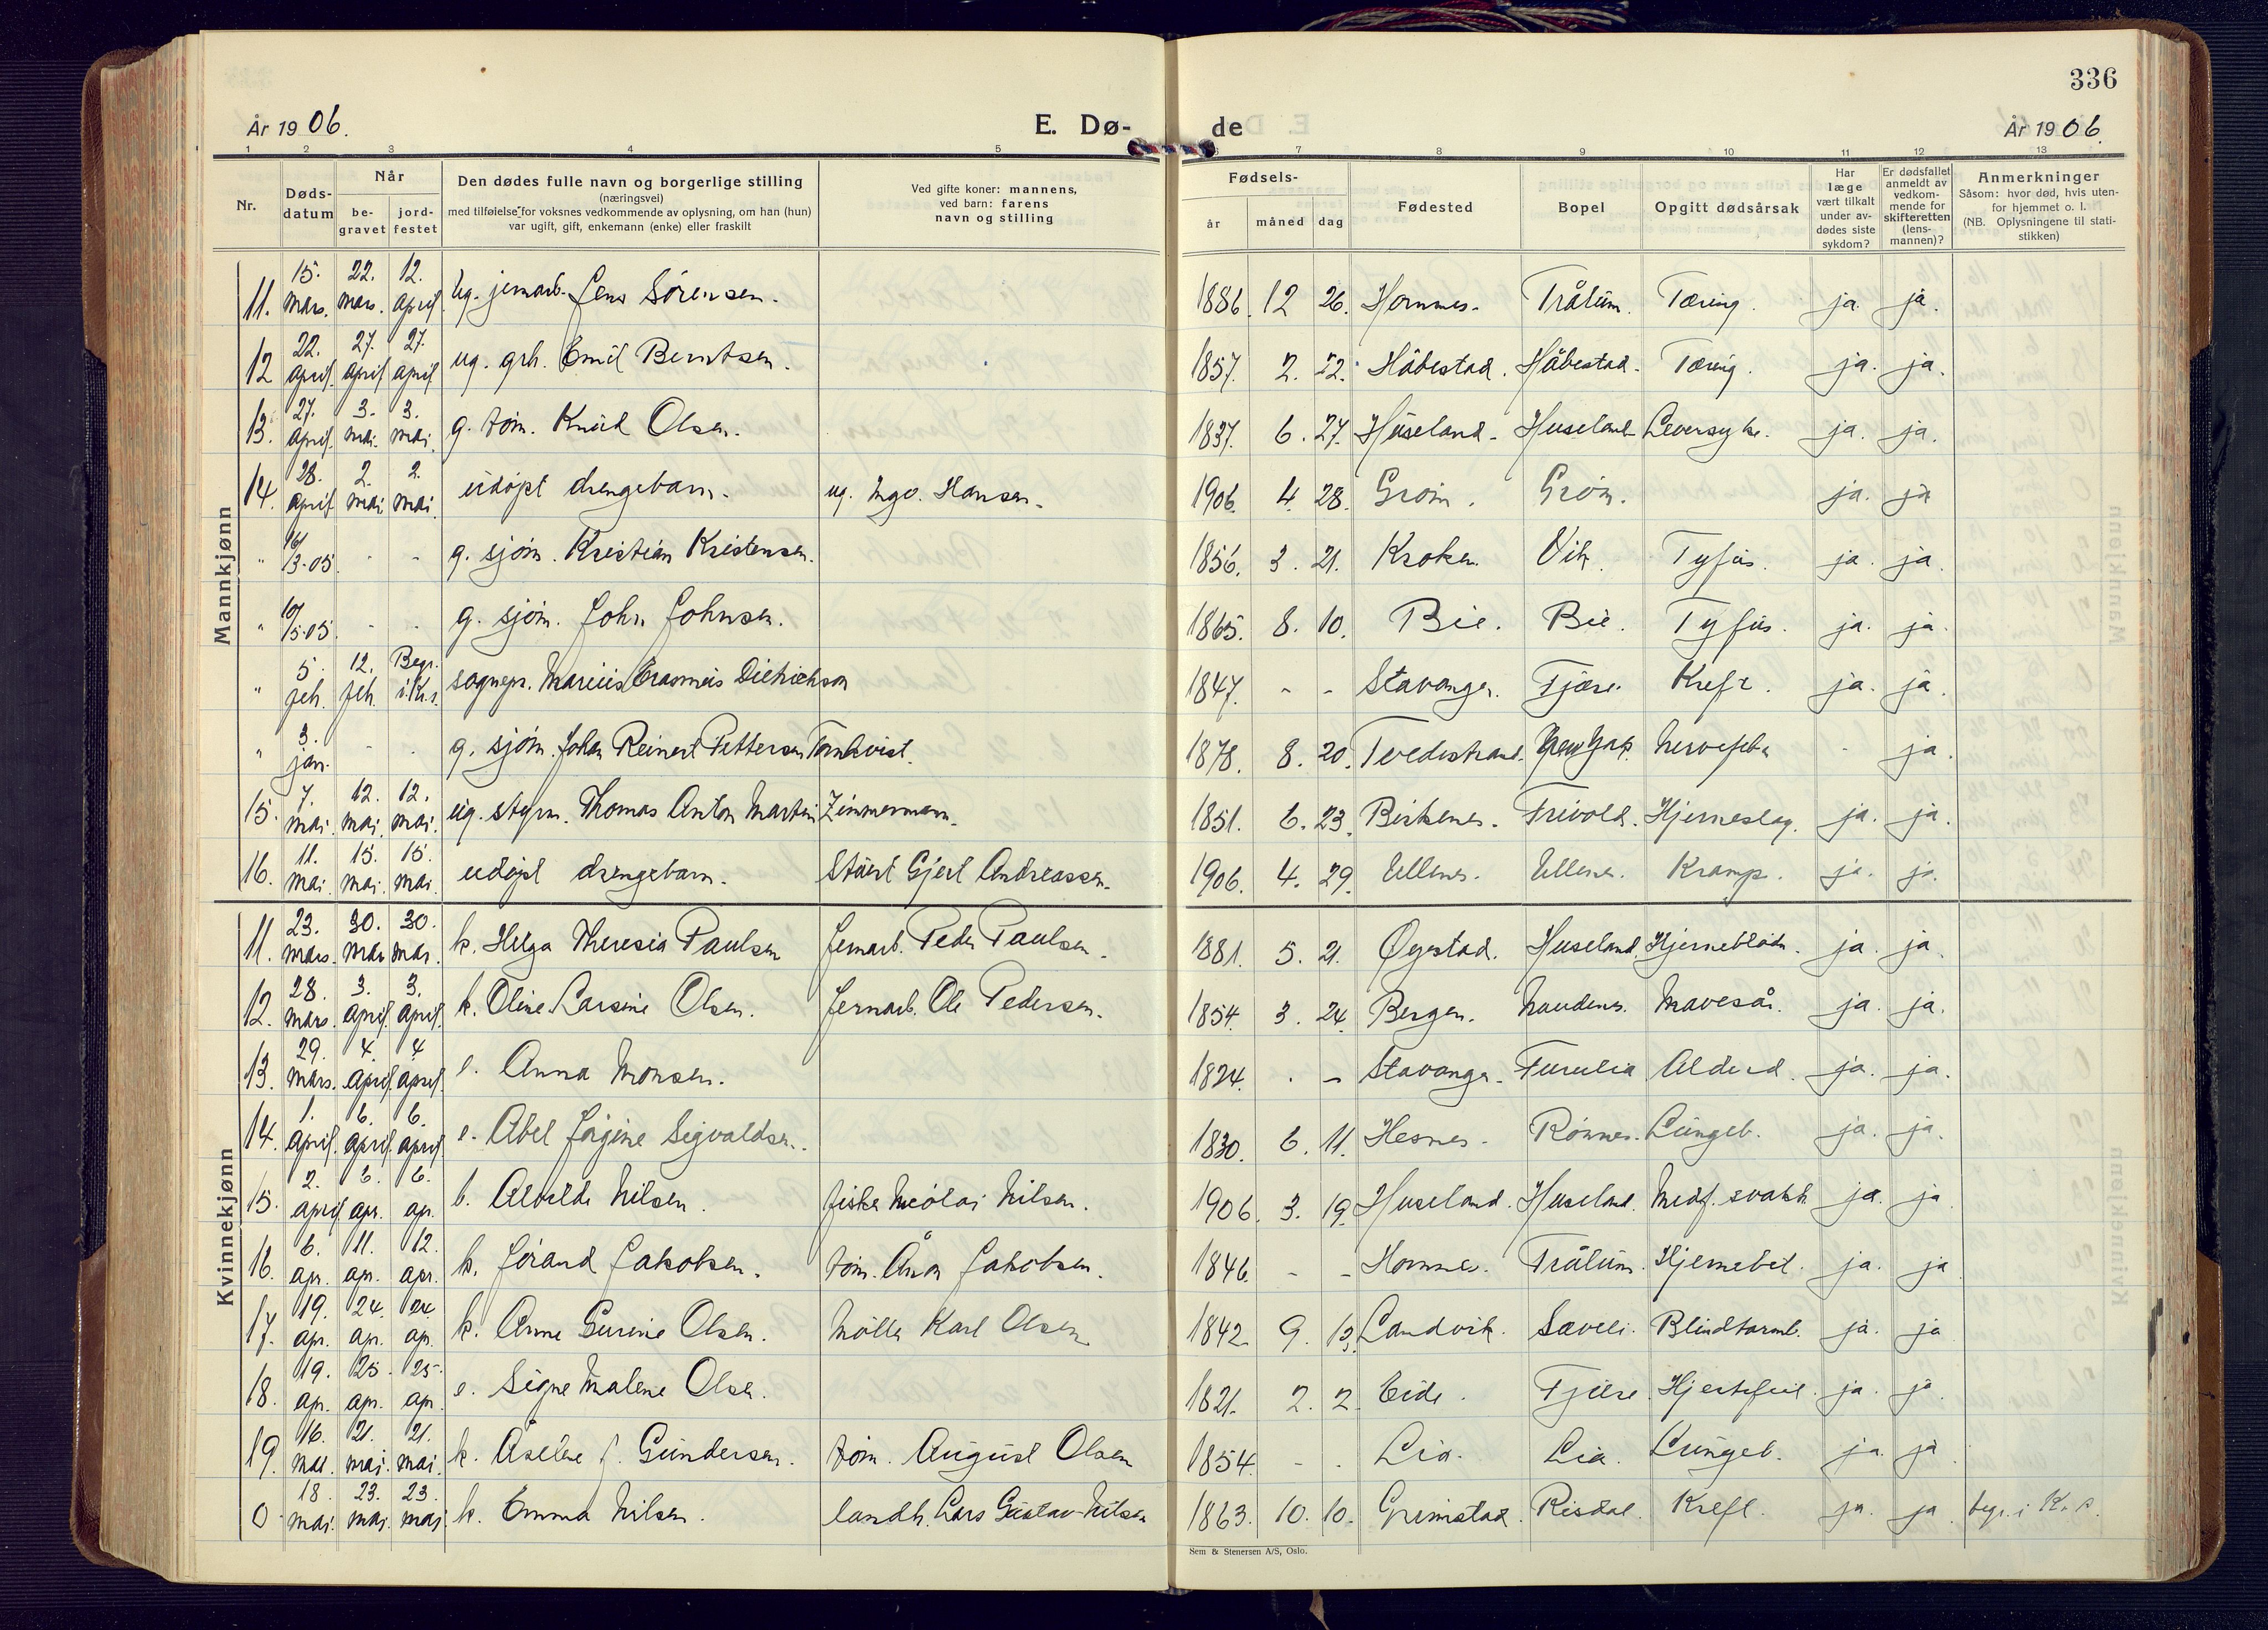 336
År 1906.
E. Dø-
de
År 1906.
1 2 3 4 5
7 8 9 10 11 12 13
Nr.
Døds-
datum
Når
be-
gravet
jord-
festet
Den dødes fulle navn og borgerlige stilling
(næringsvei)
med tilføielse for voksnes vedkommende av oplysning, om han (hun)
var ugift, gift, enkemann (enke) eller fraskilt
Ved gifte koner: mannens,
ved barn: farens
navn og stilling
Fødsels-
år måned dag
Fødested
Bopel
Opgitt dødsårsak
Har
læge
vært tilkalt
under av-
dødes siste
sykdom?
Er dødsfallet
anmeldt av
vedkom-
mende for
skifteretten
(lens-
mannen)?
Anmerkninger
Såsom: hvor død, hvis uten-
for hjemmet o. l.
(NB. Oplysningene til stati-
stikken)
Mannkjønn
11. 15. mars. 22. mars. 12. april. ug. jernarb. Jens Sörensen. 1886. 12 26. Hommes. Trålum. Tæring. ja. ja.
12 22. april. 27. april 27. april ug. grh. Emil Berntsen. 1857. 2. 22. Håbestad. Håbestad. Tæring. ja. ja.
13. 27. april. 3. mai. 3. mai. g. töm. Knud Olsen. 1837. 6. 27. Huseland. Huseland. Leversyke. ja. ja.
14. 28. april 2. mai 2. mai. udöpt drengebarn. ug. Ingv. Hansen. 1906. 4. 28. Gröm. Gröm. ja. ja
" 16/3-05. - - g. sjöm. Kristian Kristensen. 1856. 3. 21. Kroken. Vik. Tyfus. ja. ja.
" 10/5-05. - - g. sjöm. John Johnsen. 1865. 8. 10. Bie. Bie. Tyfus. ja. ja.
" 5. feb. 12. feb. Begr. i Kr.s. sognepr. Marius Erasmus Dietrichson 1847. - - Stavanger. Fjære. Kreft. ja. ja.
" 3. jan. - - g. sjöm. Johan Reinert Pettersen Tornkvist. 1878. 8. 20. Tvedestrand. New York. Nervefeber - ja.
15. 7. mai. 12. mai. 12. mai. ug. styrm. Thomas Anton Martin Zimmermann. 1851. 6. 23. Birkenes. Frivold. Hjerneslag. ja. ja.
16. 11. mai. 15. mai. 15. mai. udöpt drengebarn. Stuert Gjert Andreassen. 1906. 4. 29. Ullenes. Ullenes. Kramp. ja. ja.
Kvinnekjønn
11. 23. mars. 30. mar 30. mar. k. Helga Theresia Paulsen Jernarb. Peder Paulsen. 1881. 5. 21. Öyestad. Huseland. Hjerneblödn. ja. ja.
12. 28. mars. 3. april. 3. april. k. Oline Larsine Olsen. Jernarb. Ole Pedersen. 1854. 3. 24. Bergen. Naudenes. Mavesår. ja. ja.
13. 29. mars. 4. april 4 april. e. Anna Monsen. 1824. - - Stavanger. Furulia Alderd. ja. ja.
14. 1. april. 6. april. 6. april. e. Abel Jörgine Sigvaldsen. 1830. 6. 11. Hesnes. Rönnes. Lungeb. ja. ja.
15. 2. april. 6. apr. 6. ap. b. Alvilde Nilsen. fisker Nicolai Nilsen. 1906. 3. 19. Huseland. Huseland. Medf. svakh ja. ja
16. 6. apr. 11. ap. 12. apr. k. Jörand Jakobsen. töm. Ånon Jakobsen. 1846. - - Hommes. Trålum. Hjernebet. ja. ja
17. 19. apr. 24. ap. 24. ap. k. Anne Gurine Olsen. Möller Karl Olsen 1842. 9. 13. Landvik. Sæveli. Blindtarmb. ja. ja
18. 19. ap. 25. ap. 25. ap. e. Signe Malene Olsen. 1821. 2. 2. Eide. Fjære Hjertefeil. ja. ja.
19. 16. mai. 21. mai. 21. mai. k. Åselene J. Gundersen. töm. August Olsen 1854. - - Lia. Lia. Lungeb. ja. ja
0 18. mai. 23. mai. 23. mai k. Emma Nilsen. landh. Lars Gustav Nilsen 1863. 10. 10. Grimstad. Risdal. Kreft. ja. ja. begr. i Kr.s.
Sem & Stenersen A/S, Oslo.